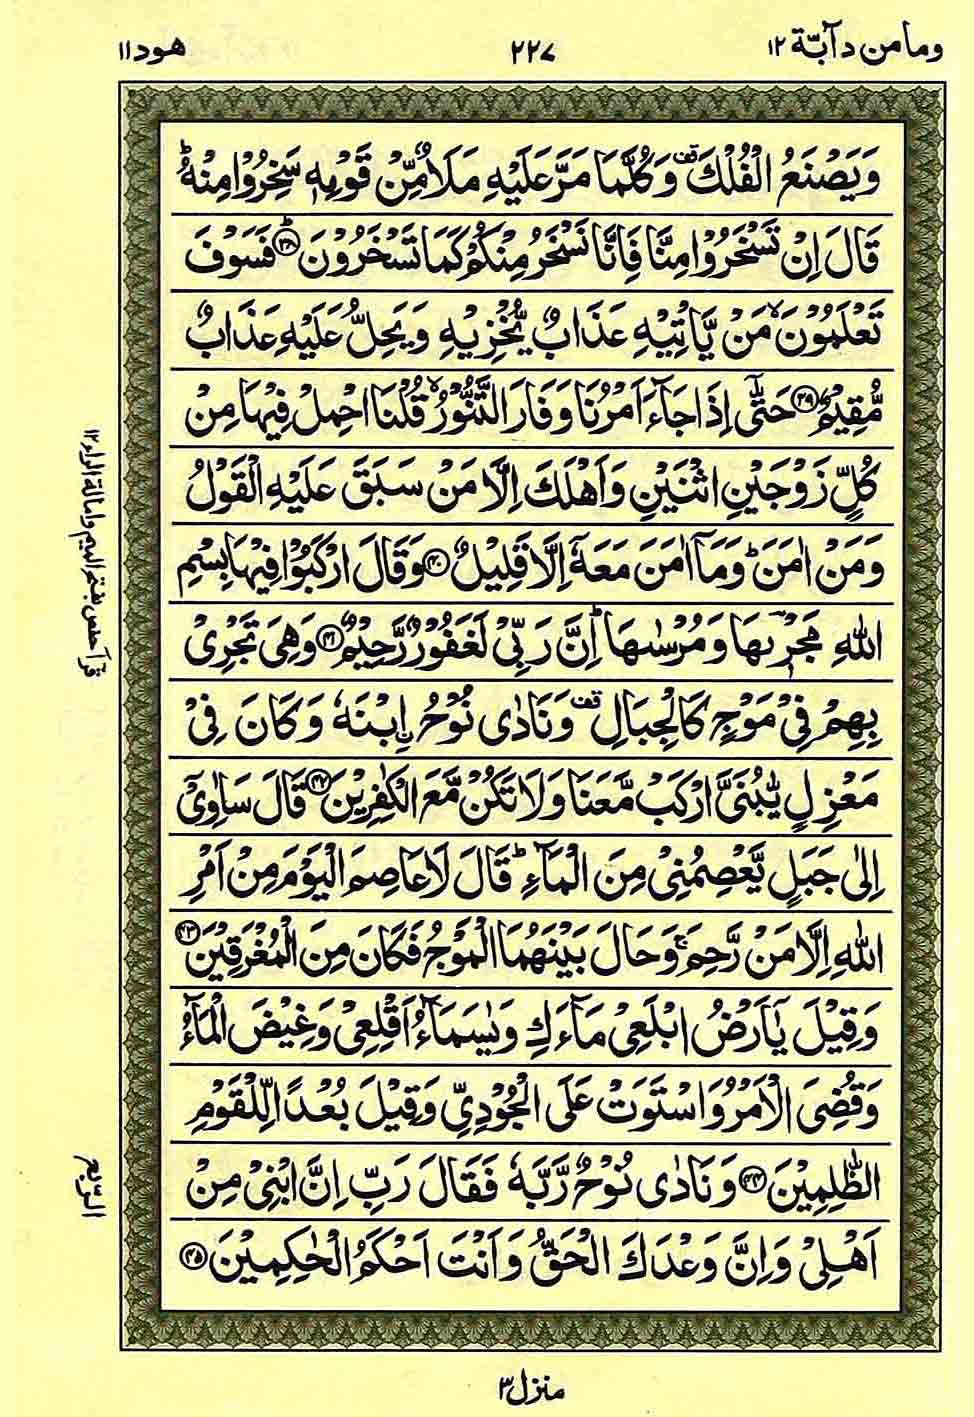 وما من دآبّة ١٢
٢٢٧
هود ١١
وَيَصْنَعُ الْفُلْكَ قف وَكُلَّمَا مَرَّ عَلَيْهِ مَلَاٌ مِّنْ قَوْمِهٖ سَخِرُوْا مِنْهُ ؕ
قَالَ اِنْ تَسْخَرُوْا مِنَّا فَاِنَّا نَسْخَرُ مِنْكُمْ كَمَا تَسْخَرُوْنَ ؕ ﴿٣٨﴾ فَسَوْفَ
تَعْلَمُوْنَ ۙ مَنْ يَّاْتِيْهِ عَذَابٌ يُّخْزِيْهِ وَيَحِلُّ عَلَيْهِ عَذَابٌ
مُّقِيْمٌ ﴿٣٩﴾ حَتّٰۤى اِذَا جَآءَ اَمْرُنَا وَفَارَ التَّنُّوْرُ ۙ قُلْنَا احْمِلْ فِيْهَا مِنْ
كُلٍّ زَوْجَيْنِ اثْنَيْنِ وَاَهْلَكَ اِلَّا مَنْ سَبَقَ عَلَيْهِ الْقَوْلُ
وَمَنْ اٰمَنَ ؕ وَمَاۤ اٰمَنَ مَعَهٗۤ اِلَّا قَلِيْلٌ ﴿٤٠﴾ وَقَالَ ارْكَبُوْا فِيْهَا بِسْمِ
اللّٰهِ مَجْرٖىهَا وَمُرْسٰىهَا ؕ اِنَّ رَبِّيْ لَغَفُوْرٌ رَّحِيْمٌ ﴿٤١﴾ وَهِيَ تَجْرِيْ
بِهِمْ فِيْ مَوْجٍ كَالْجِبَالِ قف وَنَادٰى نُوْحُ ۨ ابْنَهٗ وَكَانَ فِيْ
مَعْزِلٍ يّٰبُنَيَّ ارْكَبْ مَّعَنَا وَلَا تَكُنْ مَّعَ الْكٰفِرِيْنَ ﴿٤٢﴾ قَالَ سَاٰوِيْۤ
اِلٰى جَبَلٍ يَّعْصِمُنِيْ مِنَ الْمَآءِ ؕ قَالَ لَا عَاصِمَ الْيَوْمَ مِنْ اَمْرِ
اللّٰهِ اِلَّا مَنْ رَّحِمَ ۚ وَحَالَ بَيْنَهُمَا الْمَوْجُ فَكَانَ مِنَ الْمُغْرَقِيْنَ ﴿٤٣﴾
وَقِيْلَ يٰۤاَرْضُ ابْلَعِيْ مَآءَكِ وَيٰسَمَآءُ اَقْلِعِيْ وَغِيْضَ الْمَآءُ
وَقُضِيَ الْاَمْرُ وَاسْتَوَتْ عَلَى الْجُوْدِيِّ وَقِيْلَ بُعْدًا لِّلْقَوْمِ
الظّٰلِمِيْنَ ﴿٤٤﴾ وَنَادٰى نُوْحٌ رَّبَّهٗ فَقَالَ رَبِّ اِنَّ ابْنِيْ مِنْ
اَهْلِيْ وَاِنَّ وَعْدَكَ الْحَقُّ وَاَنْتَ اَحْكَمُ الْحٰكِمِيْنَ ﴿٤٥﴾
قرأ حفص بفتح الميم وامالة الراء ١٢
الرّبع
منزل ٣